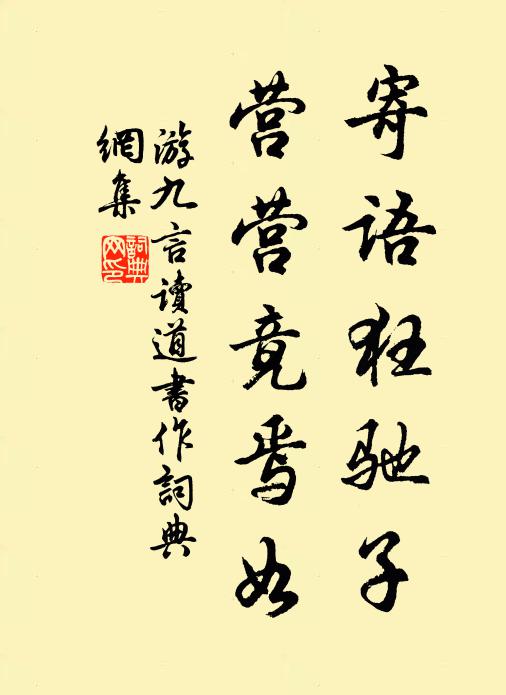 寄语狂驰子
营营竟焉如
游九言读道书作词典
網集
詞典网印